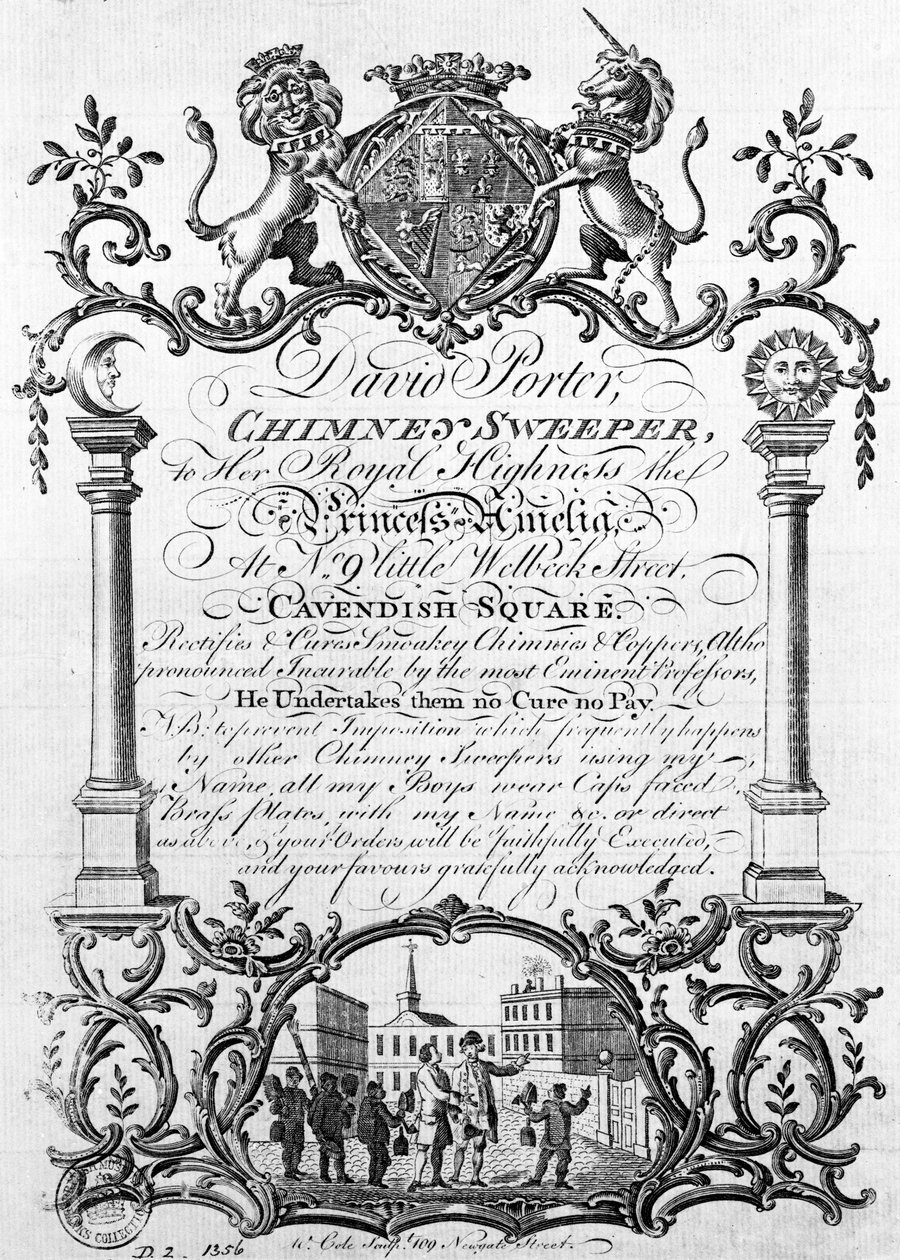 David Porter,
CHIMNEY SWEEPER,
to Her Royal Highness the
Princeſs Amelia,
At No. 9 little Welbeck Street,
CAVENDISH SQUARE.
Rectifies & Cures Smoakey Chimnies & Coppers, Altho
pronounced Incurable by the most Eminent Profeſsors,
He Undertakes them no Cure no Pay.
NB. to prevent Imposition which frequently happens
by other Chimney Sweepers using my
Name, all my Boys wear Caps faced
Braſs Plates, with my Name &c. or direct
as above, & your Orders will be faithfully Executed,
and your favours gratefully acknowledged.
Wm. Cole Sculpt. 109 Newgate Street.
D. 2. 1356